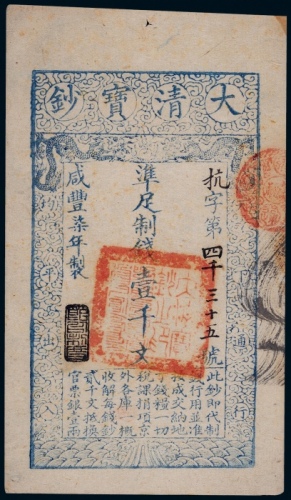 大清寶鈔
天下通行
抗字第四千三十五號
準足制錢壹千文
咸豐柒年製
均平出入
此鈔即代制
錢行用並准
按成交納地
丁錢糧一切
稅課捐項京
外各庫一概
收解每錢鈔
貳千文抵換
官票銀壹兩